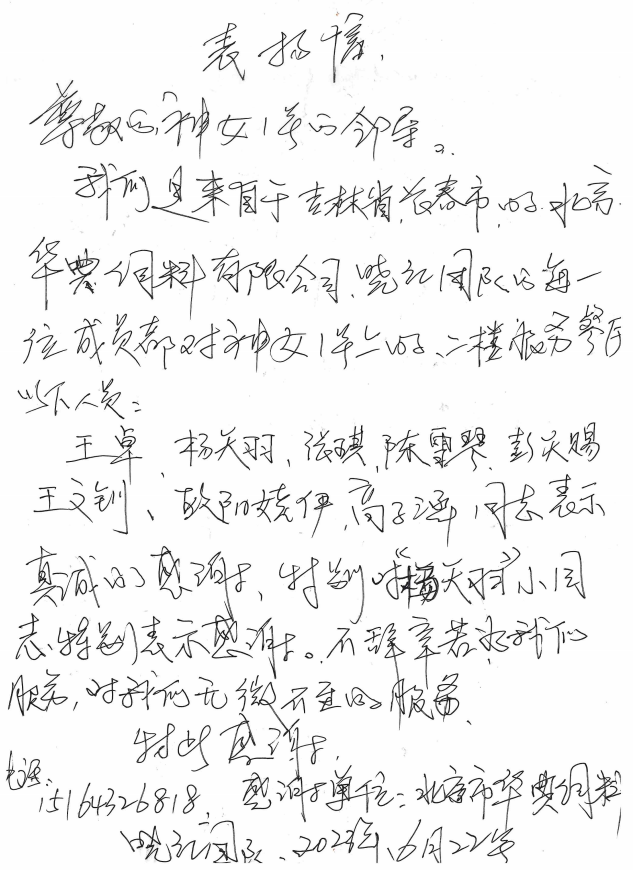 表扬信.
尊敬的神女1号的领导:
我们是来自于吉林省长春市,的
华农饲料有限公司,晓红团队的每一
位成员都对神女1号上的、二楼服务餐厅
以下人员:
王卓、杨天羽、张琪、陈雪琴、彭天赐
王文钊、欧阳娆伊、高子涵 同志表示
真诚的感谢、特别对“杨天羽”小同
志特别表示感谢。不辞辛苦为我们
服务,对我们无微不至的服务.
特此感谢.
电话:
15164326818、感谢单位: 市华农饲料
晓红团队、2023年6月22号